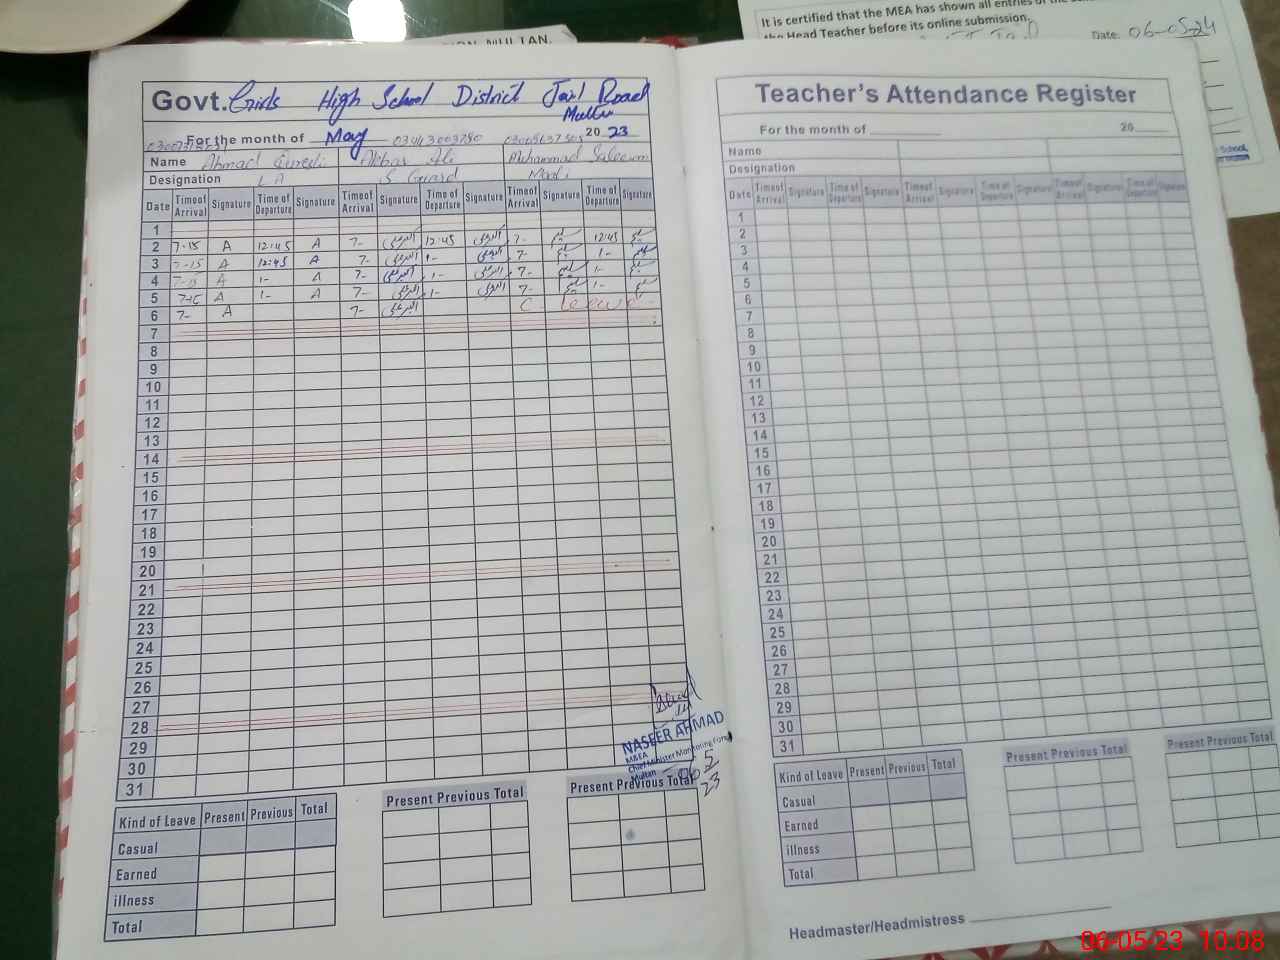 It is certified that the MEA has shown all entries of the
the Head Teacher before its online submission.
Date: 06-05-24
MULTAN.
School,
Govt. Girls High School District Jail Road
Multan
For the month of May 2023
Name Ahmad Akbar Ali Muhammad Saleem
Designation LA S. Guard Mali
Date Time of Arrival Signature Time of Departure Signature Time of Arrival Signature Time of Departure Signature Time of Arrival Signature Time of Departure Signature
1
2 7-15 A 12:45 A 7- 12:45 7- 12:45
3 7-15 A 12:45 A 7- 1- 7- 1-
4 7-15 A 1- A 7- 1- 7- 1-
5 7-15 1- A 7- 1- 7- 1-
6 7- A 7- C leave
7
8
9
10
11
12
13
14
15
16
17
18
19
20
21
22
23
24
25
26
27
28
29
30
31
NASEER AHMAD
M&EA
Chief Minister Monitoring Force
Multan
5
23
Kind of Leave Present Previous Total
Casual
Earned
illness
Total
Present Previous Total
Present Previous Total
Teacher's Attendance Register
For the month of 20
Name
Designation
Date Time of Arrival Signature Time of Departure Signature Time of Arrival Signature Time of Departure Signature Time of Arrival Signature Time of Departure Signature
1
2
3
4
5
6
7
8
9
10
11
12
13
14
15
16
17
18
19
20
21
22
23
24
25
26
27
28
29
30
31
Kind of Leave Present Previous Total
Casual
Earned
illness
Total
Present Previous Total
Present Previous Total
Headmaster/Headmistress
06-05-23 10.08